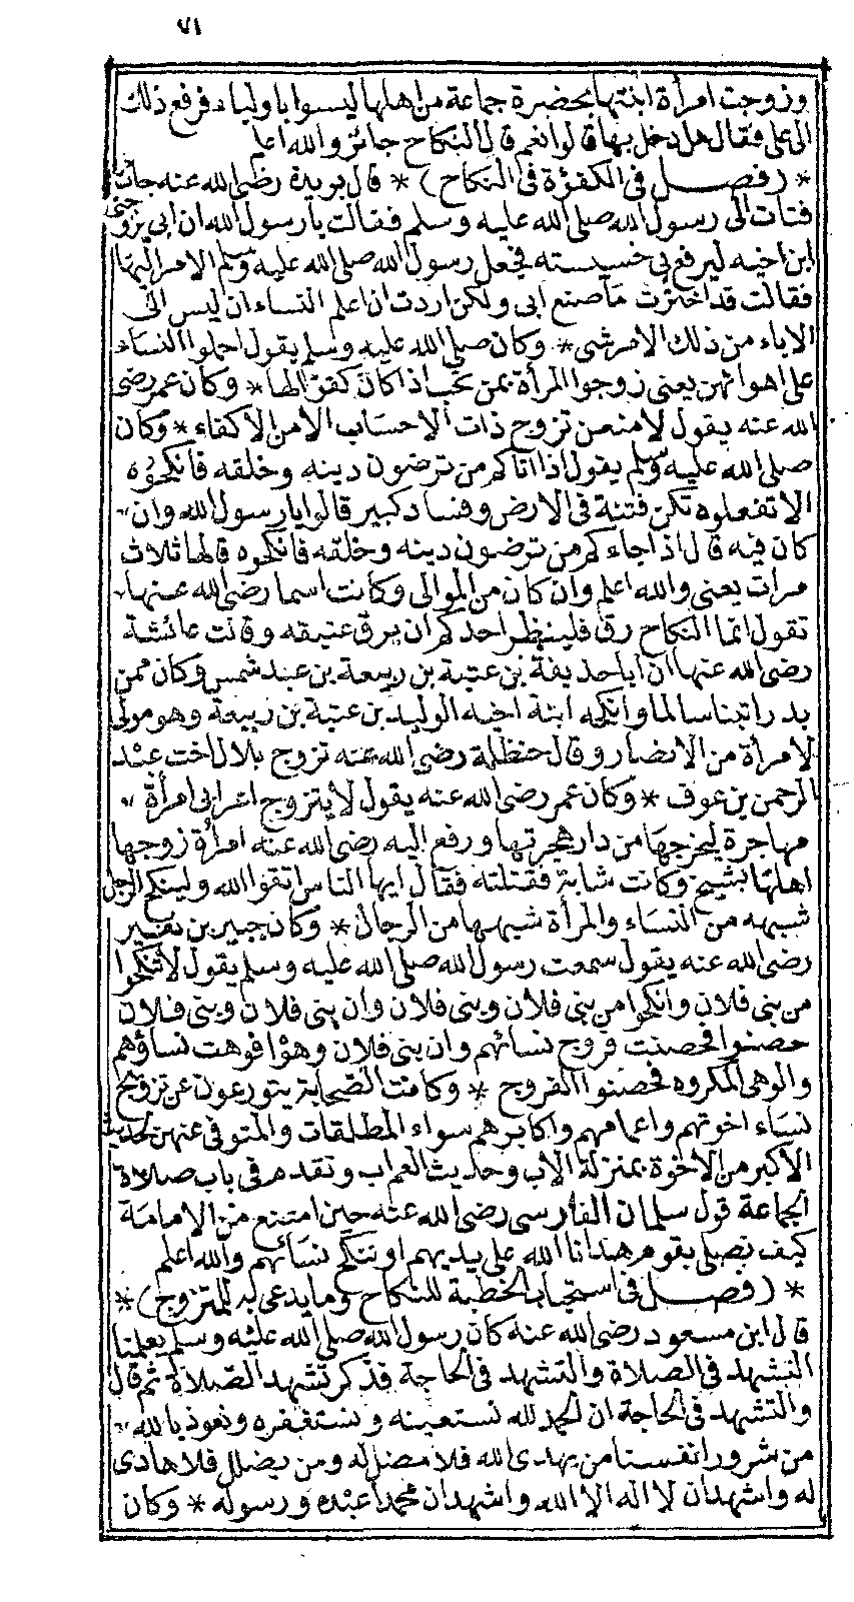 ٧١
وزوجت امرأة ابنتها بحضرة جماعة من اهلها ليسوا باولياء فرفع ذلك
الى على فقال هل دخل بها قالوا نعم قال النكاح جائز والله اعلم
* (فصل فى الكفؤة فى النكاح) * قال بريدة رضى الله عنه جاءت
فتاة الى رسول الله صلى الله عليه وسلم فقالت يا رسول الله ان ابى زوجنى
ابن اخيه ليرفع بى خسيسته فجعل رسول الله صلى الله عليه وسلم الامر اليها
فقالت قد اخترت ما صنع ابى ولكن اردت ان اعلم النساء ان ليس الى
الاباء من ذلك الامر شى * وكان صلى الله عليه وسلم يقول احملوا النساء
على اهوائهن يعنى زوجوا المرأة بمن تحب اذا كان كفؤا لها * وكان عمر رضى
الله عنه يقول لامنعن تزوج ذات الاحساب الا من الاكفاء * وكان
صلى الله عليه وسلم يقول اذا اتاكم من ترضون دينه وخلقه فانكحوه
الا تفعلوه تكن فتنة فى الارض وفساد كبير قالوا يا رسول الله وان
كان فيه قال اذا جاءكم من ترضون دينه وخلقه فانكحوه قالها ثلاث
مرات يعنى والله اعلم وان كان من الموالى وكانت اسما رضى الله عنها
تقول انما النكاح رق فلينظر احدكم ان يرق عتيقه وقالت عائشة
رضى الله عنها ان ابا حذيفة بن عتبة بن ربيعة بن عبد شمس وكان ممن
بدرا تبنا سالما وانكحه ابنة اخيه الوليد بن عتبة بن ربيعة وهو مولى
لامرأة من الانصار وقال حنظلة رضى الله عنه تزوج بلال اخت عبد
الرحمن بن عوف * وكان عمر رضى الله عنه يقول لا يتزوج اعرابى امرأة
مهاجرة ليخرجها من دار هجرتها ورفع اليه رضى الله عنه امرأة زوجها
اهلها بشيخ وكانت شابة فقتلته فقال ايها الناس اتقوا الله ولينكح الرجل
شبهه من النساء والمرأة شبهها من الرجال * وكان جبير بن نفير
رضى الله عنه يقول سمعت رسول الله صلى الله عليه وسلم يقول لا تنكحوا
من بنى فلان وانكحوا من بنى فلان وبنى فلان وان بنى فلان وبنى فلان
حصنوا فحصنت فروج نسائهم وان بنى فلان وهوا فوهت نساؤهم
والوهى المكروه فحصنوا الفروج * وكانت الصحابة يتورعون عن تزويج
نساء اخوتهم واعمامهم واكابرهم سواء المطلقات والمتوفى عنهن لحديث
الاكبر من الاخوة بمنزلة الاب وحديث العم اب وتقدم فى باب صلاة
الجماعة قول سلمان الفارسى رضى الله عنه حين امتنع من الامامة
كيف نصلى بقوم هدانا الله على يديهم او ننكح نسائهم والله اعلم
* (فصل فى استحباب الخطبة للنكاح وما يدعى به للمتزوج) *
قال ابن مسعود رضى الله عنه كان رسول الله صلى الله عليه وسلم يعلمنا
التشهد فى الصلاة والتشهد فى الحاجة فذكر تشهد الصلاة ثم قال
والتشهد فى الحاجة ان الحمد لله نستعينه ونستغفره ونعوذ بالله
من شرور انفسنا من يهدى الله فلا مضل له ومن يضلل فلا هادى
له واشهد ان لا اله الا الله واشهد ان محمدا عبده ورسوله * وكان